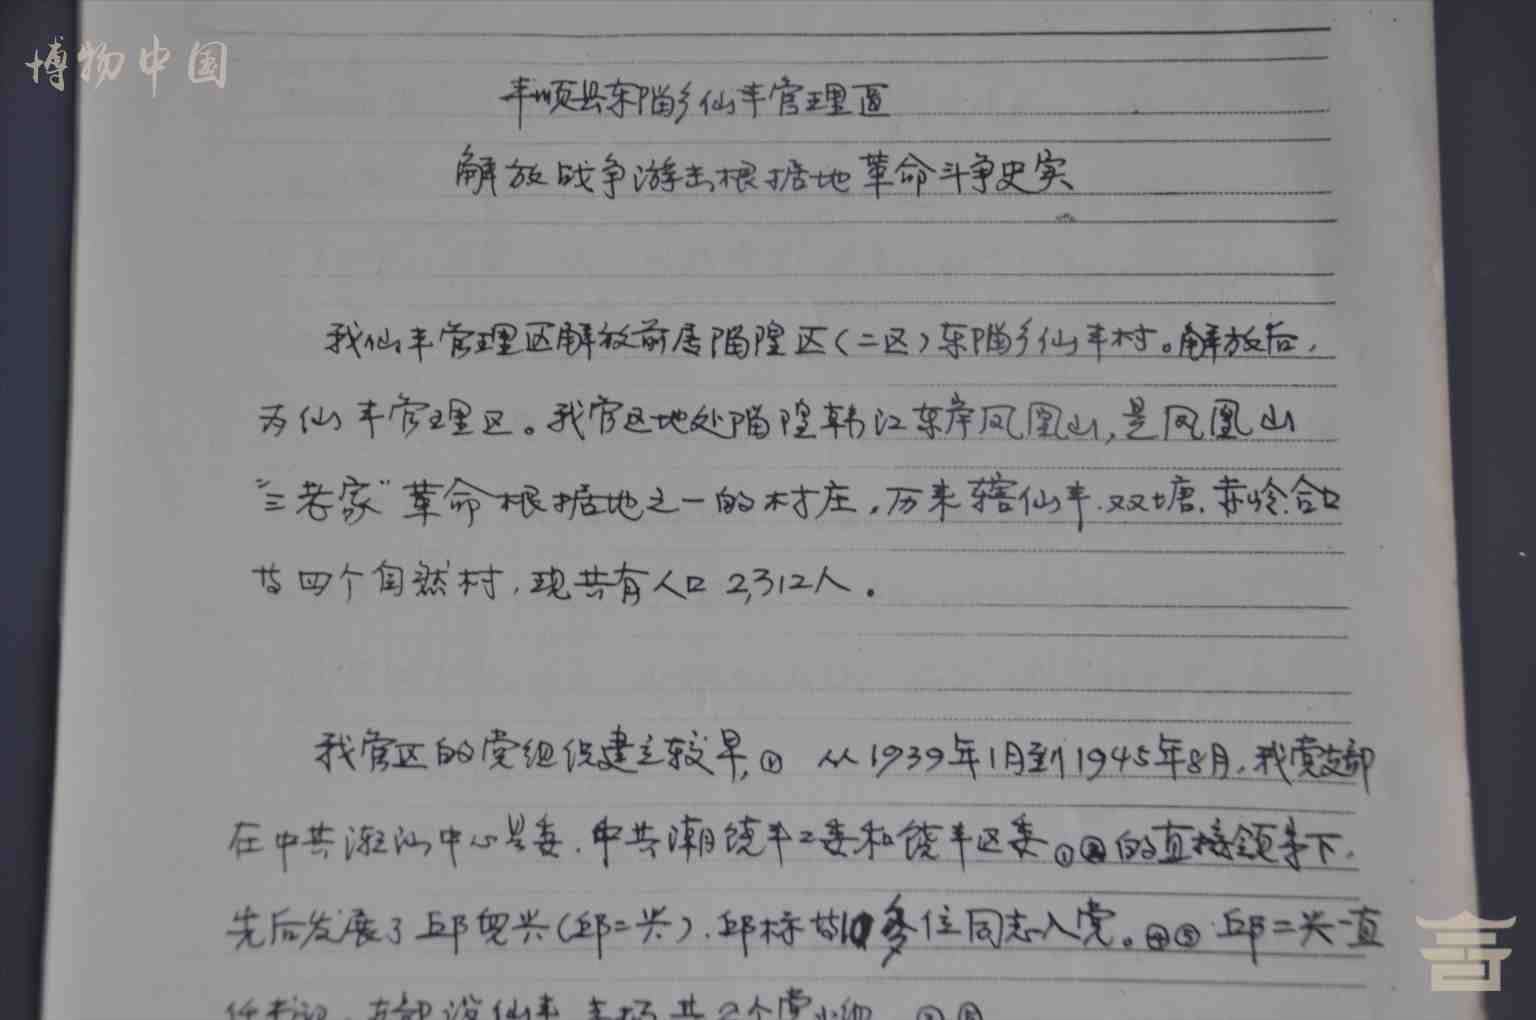 博物中国
丰顺县东㽏乡仙丰管理区
解放战争游击根据地革命斗争史实
我仙丰管理区解放前居㽏隍区(二区)东㽏乡仙丰村。解放后,
为仙丰管理区。我管区地处㽏隍韩江东岸凤凰山,是凤凰山
"三老家"革命根据地之一的村庄,历来辖仙丰、双塘、赤岭、合口
等四个自然村,现共有人口2,312人。
我管区的党组织建立较早,① 从1939年1月到1945年8月,我党支部
在中共潮汕中心县委、中共潮饶丰工委和饶丰区委①②的直接领导下,
先后发展了邱兴(邱二兴)、邱标等10多位同志入党。④⑤ 邱二兴一直
任书记,支部设仙丰、共2个党小组